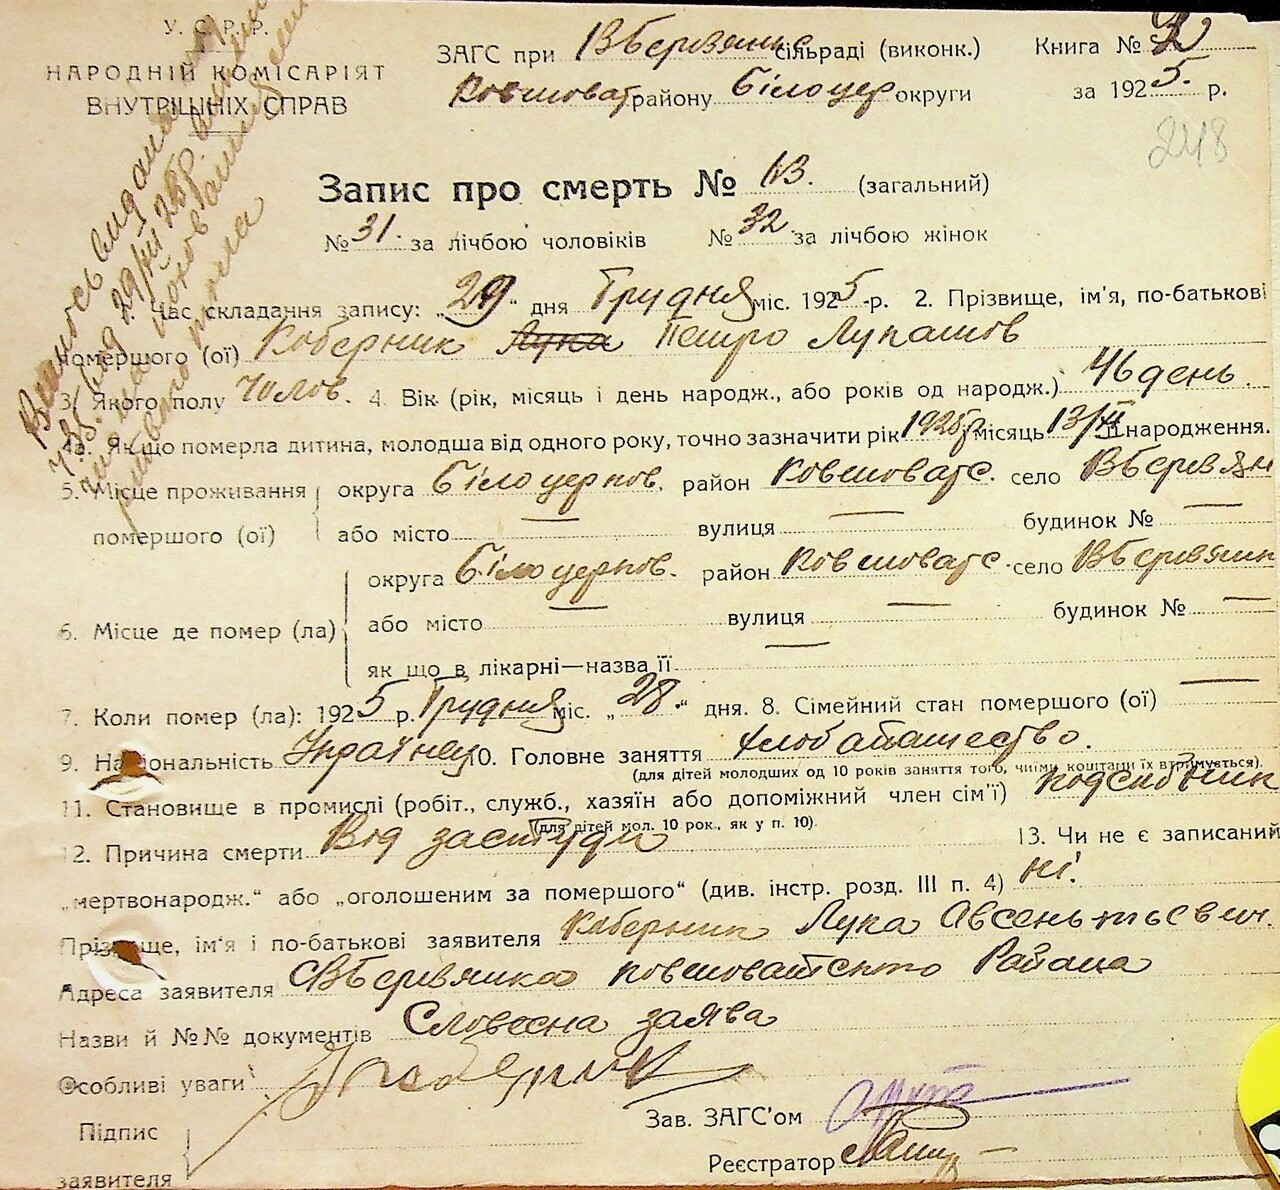 У. С. Р. Р.
НАРОДНІЙ КОМІСАРІЯТ
ВНУТРІШНІХ СПРАВ
ЗАГС при В Березянс сільраді (виконк.) Книга № 2
Ковшоват району Білоцер округи за 1925 р.
248
Запис про смерть № (загальний)
№ 31. за лічбою чоловіків № 32 за лічбою жінок
1. Час складання запису: „29“ дня Грудня міс. 1925 -р. 2. Прізвище, ім'я, по-батькові
помершого (ої) Коберник Лука Петро Лукашов
3. Якого полу Чолов. 4. Вік (рік, місяць і день народж., або років од народж.) 46 день.
4а. Як що померла дитина, молодша від одного року, точно зазначити рік 1925 р місяць 13/ її народження.
5. Місце проживання округа Білоцерков. район Ковшоватс. село В Березян
помершого (ої) або місто — вулиця — будинок № —
округа Білоцерков. район Ковшоватс село В Березянк
6. Місце де помер (ла) або місто — вулиця — будинок № —
як що в лікарні—назва її —
7. Коли помер (ла): 1925 р. Грудня міс. „28.“ дня. 8. Сімейний стан помершого (ої) —
9. Національність Українец 10. Головне заняття хлобапашество.
(для дітей молодших од 10 років заняття того, чиїми коштами їх втримується).
11. Становище в промислі (робіт., служб., хазяїн або допоміжний член сім'ї)
(для дітей мол. 10 рок., як у п. 10).
12. Причина смерти Вод застуди 13. Чи не є записаний
„мертвонародж.“ або „оголошеним за помершого“ (див. інстр. розд. III п. 4) ні.
Прізвище, ім'я і по-батькові заявителя Коберник Лука Авсентьевич.
Адреса заявителя С В Березянка Ковшоватського Района
Назви й №№ документів Словесна заява
Особливі уваги
Підпис
заявителя
Л Коберник
Зав. ЗАГС'ом
Реєстратор